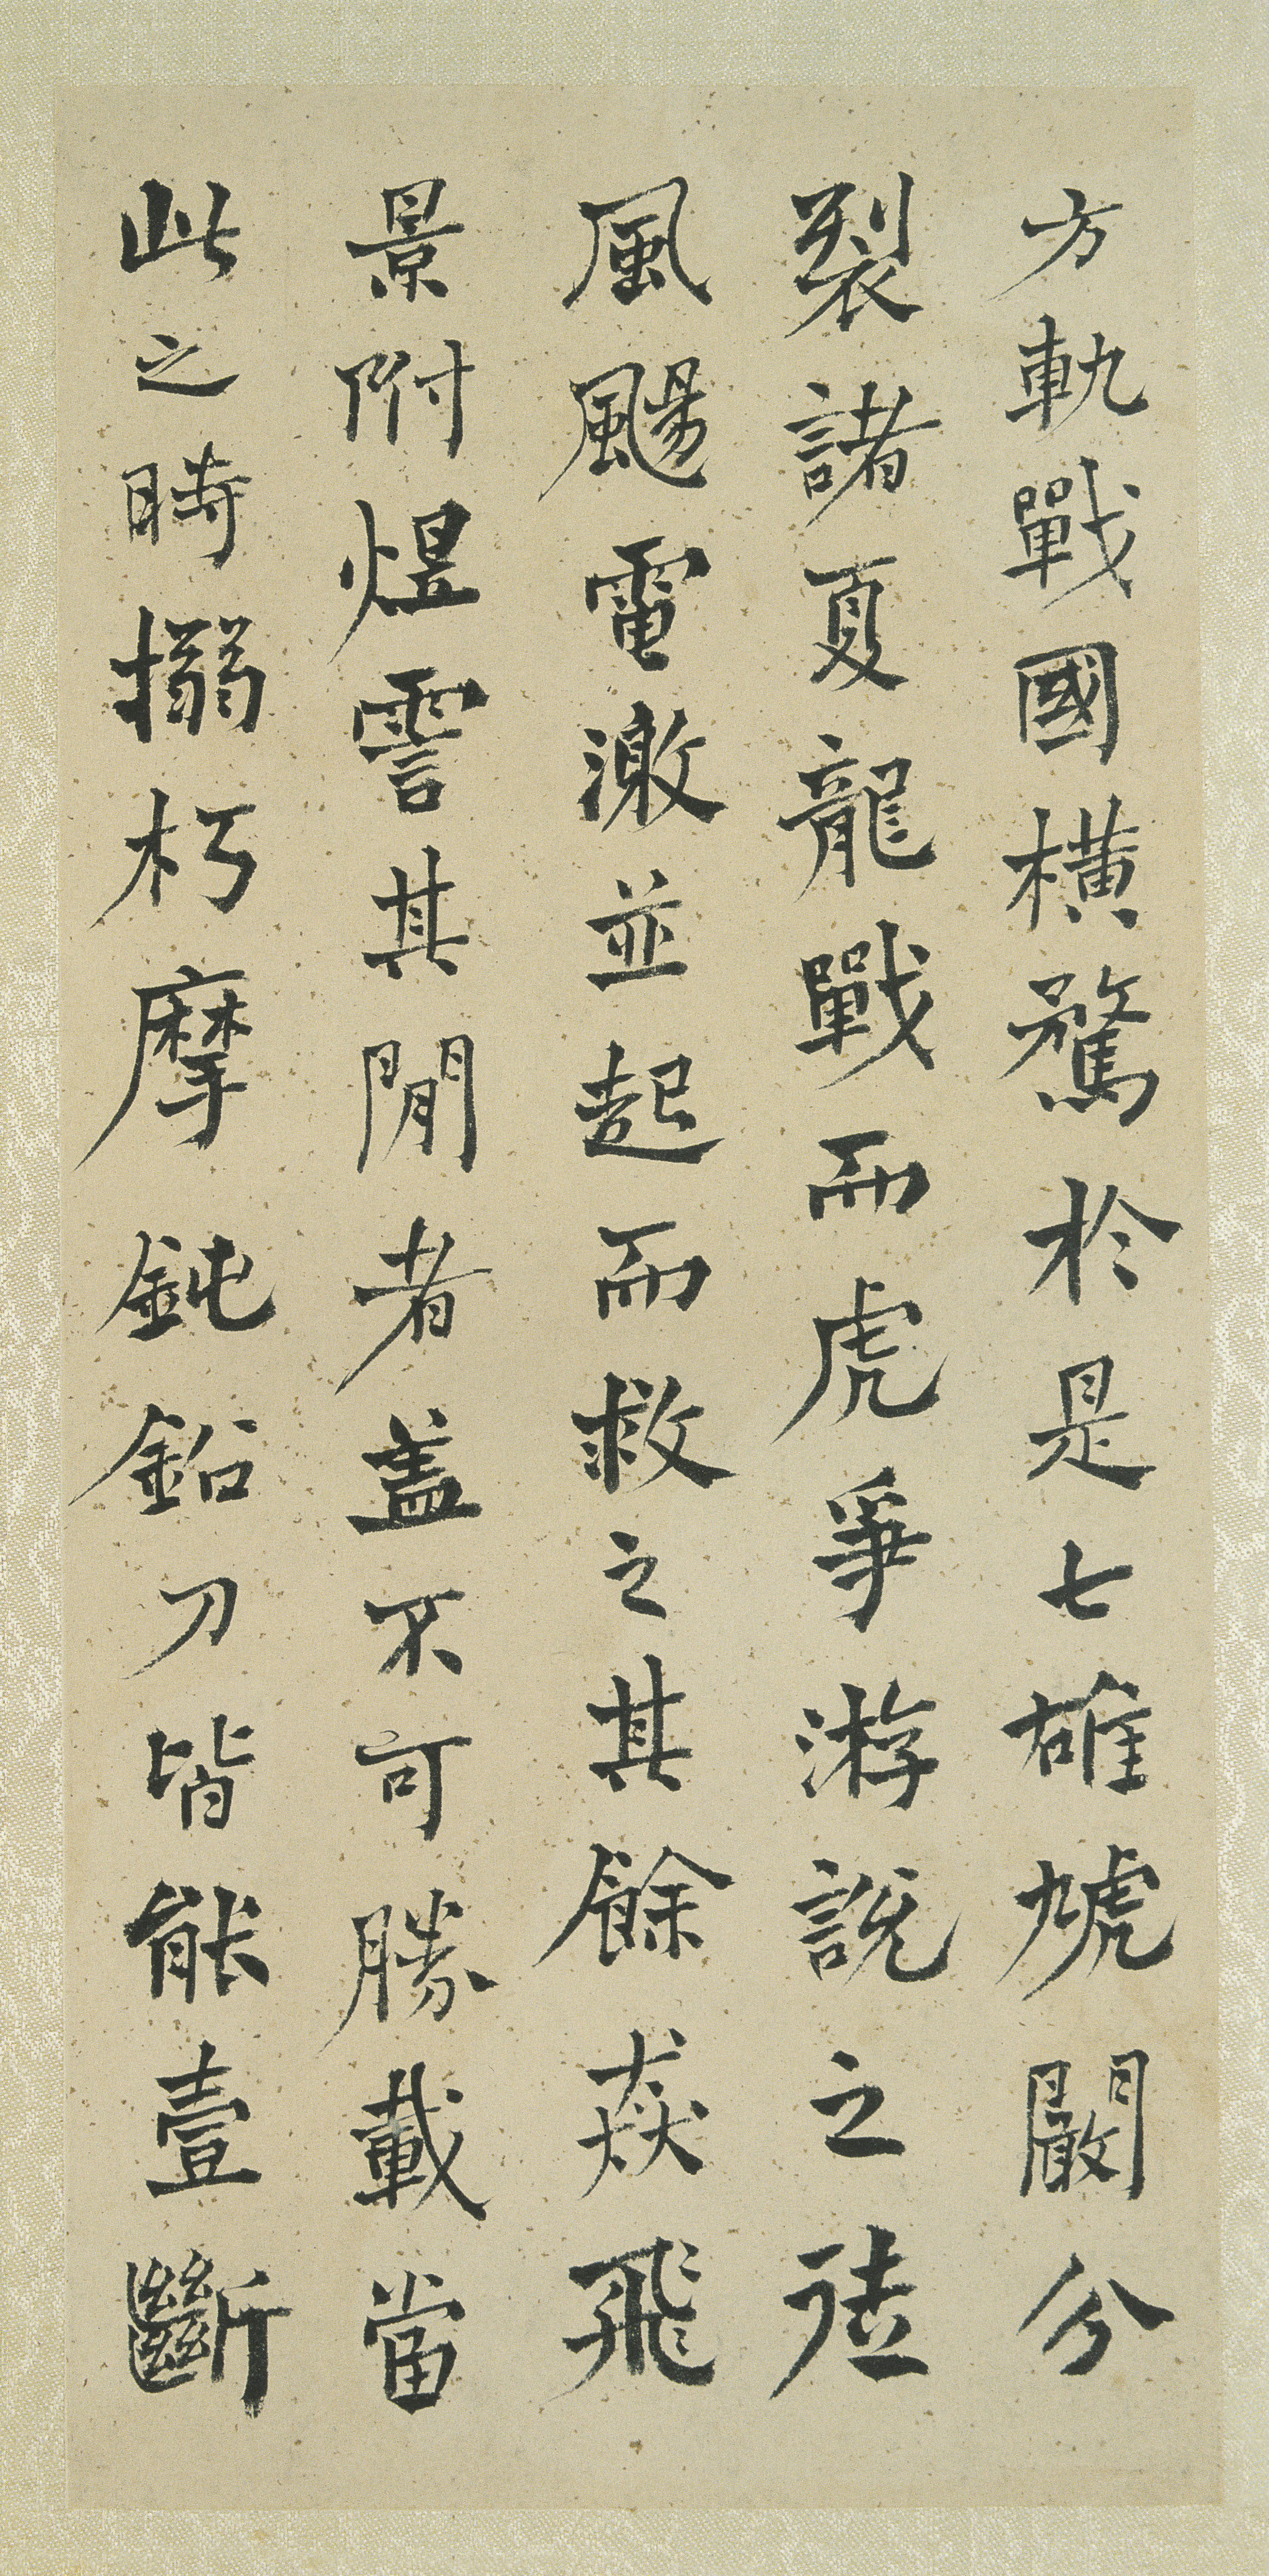 方軌戰國橫驁於是七雄虓闞分
裂諸夏龍戰而虎爭游說之徒
風颺電激並起而救之其餘猋飛
景附煜霅其閒者蓋不可勝載當
此之時搦朽摩鈍鉛刀皆能壹斷